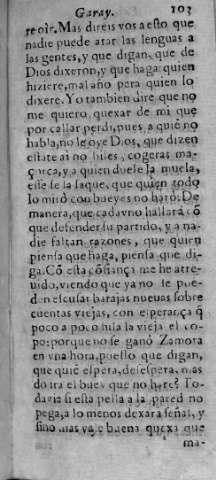 Garay. 103
reoir. Mas direis vos a esto que
nadie puede atar las lenguas a
las gentes, y que digan, que de
Dios dixeron, y que haga quien
hiziere, mal año para quien lo
dixere. Yo tambien dire que no
me quiero quexar de mi que
por callar perdi, pues a quiē no
habla, no le oye Dios, que dizen
estate ai no hiles, cogeras ma-
çorca, y a quien duele la muela,
esse se la saque, que quien todo
lo miró con bueyes no haró: De
manera, que cada vno hallará cō
que defender su partido, y a na-
die faltan razones, que quien
piensa que haga, piensa que di-
ga. Cō esta cōfiança me he atre-
uido, viendo que ya no se pue-
den escusar barajas nueuas sobre
cuentas viejas, con esperança q̃
poco a poco hila la vieja el co-
po: porque no se ganó Zamora
en vna hora, puesto que digan,
que quiē espera, desespera, mas
do ira el buey que no are? To-
dauia si esta pella a la pared no
pega, a lo menos dexara señal, y
sino mas vale buena quexa que
ma-